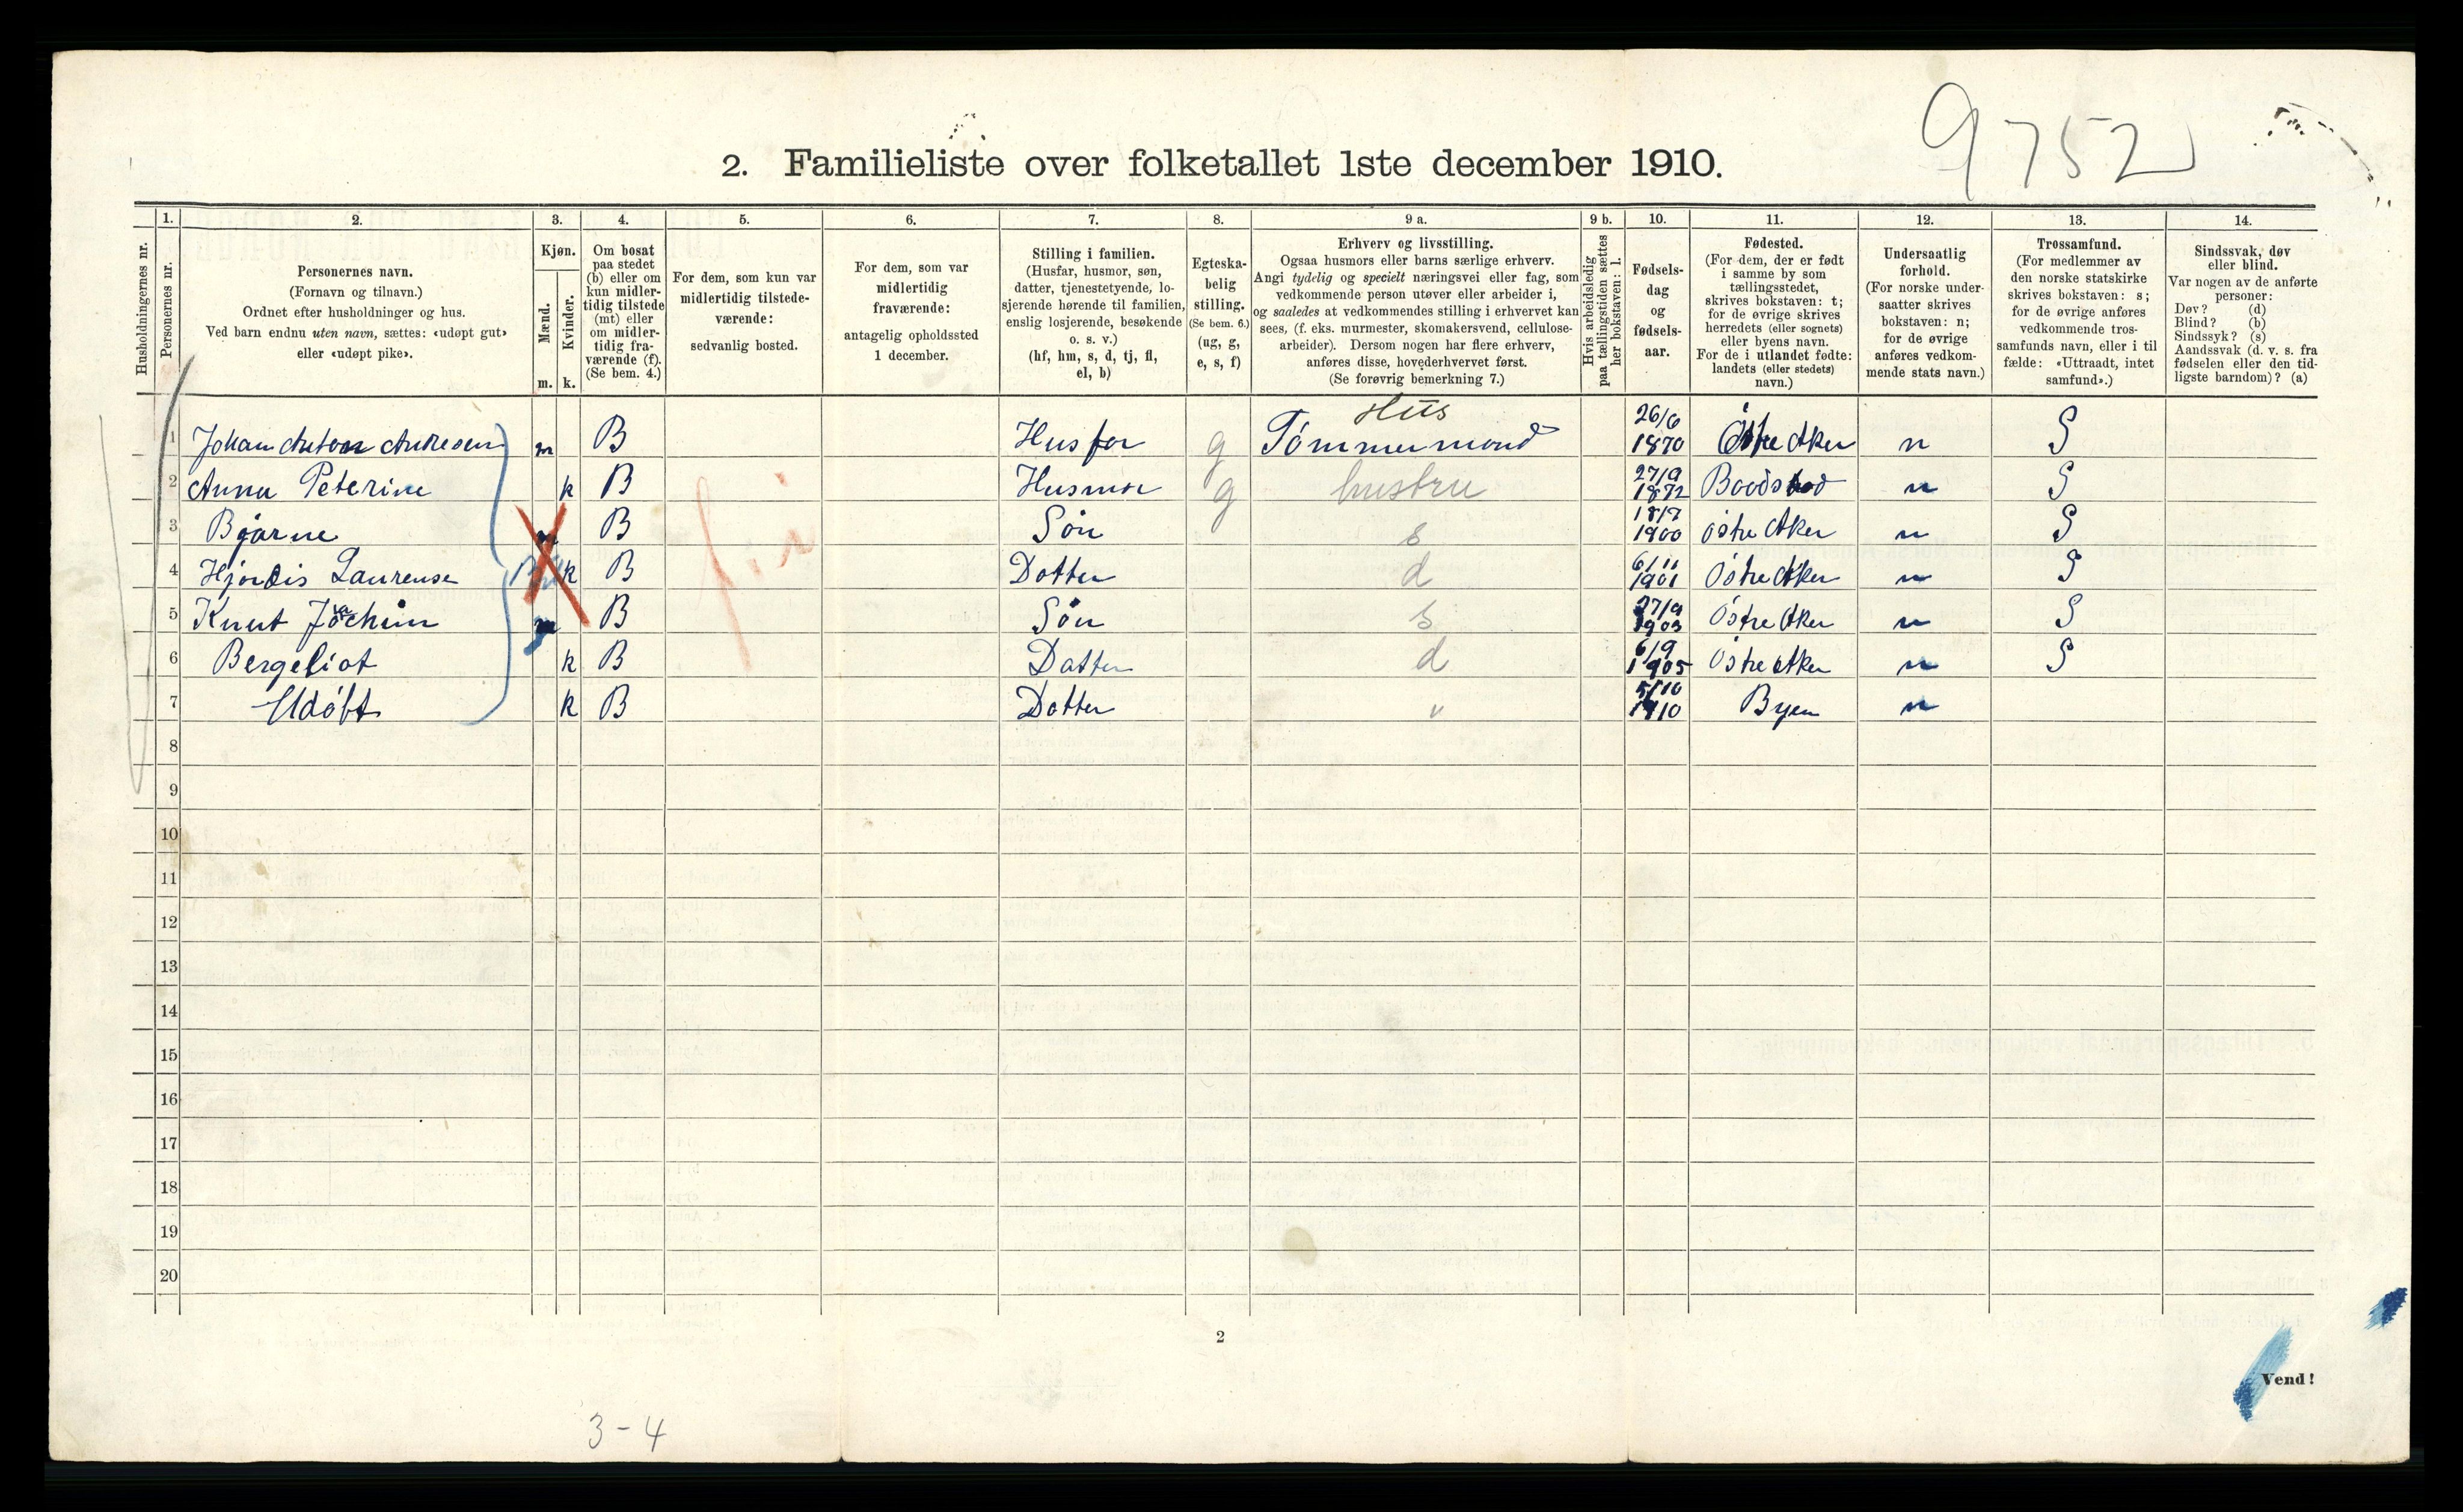 9752
2. Familieliste over folketallet 1ste december 1910.
Husholdningernes nr.
1.
Personernes nr.
2.
Personernes navn.
(Fornavn og tilnavn.)
Ordnet efter husholdninger og hus.
Ved barn endnu uten navn, sættes: «udøpt gut»
eller «udøpt pike».
3.
Kjøn.
Mænd.
Kvinder.
m. k.
4.
Om bosat
paa stedet
(b) eller om
kun midler-
tidig tilstede
(mt) eller
om midler-
tidig fra-
værende (f).
(Se bem. 4.)
5.
For dem, som kun var
midlertidig tilstede-
værende:
sedvanlig bosted.
6.
For dem, som var
midlertidig
fraværende:
antagelig opholdssted
1 december.
7.
Stilling i familien.
(Husfar, husmor, søn,
datter, tjenestetyende, lo-
sjerende hørende til familien,
enslig losjerende, besøkende
o. s. v.)
(hf, hm, s, d, tj, fl,
el, b)
8.
Egteska-
belig
stilling.
(Se bem. 6.)
(ug, g,
e, s, f)
9 a.
Erhverv og livsstilling.
Ogsaa husmors eller barns særlige erhverv.
Angi tydelig og specielt næringsvei eller fag, som
vedkommende person utøver eller arbeider i,
og saaledes at vedkommendes stilling i erhvervet kan
sees, (f. eks. murmester, skomakersvend, cellulose-
arbeider). Dersom nogen har flere erhverv,
anføres disse, hovederhvervet først.
(Se forøvrig bemerkning 7.)
9 b.
Hvis arbeidsledig
paa tællingstiden sættes
her bokstaven: l.
10.
Fødsels-
dag
og
fødsels-
aar.
11.
Fødested.
(For dem, der er født
i samme by som
tællingsstedet,
skrives bokstaven: t;
for de øvrige skrives
herredets (eller sognets)
eller byens navn.
For de i utlandet fødte:
landets (eller stedets)
navn.)
12.
Undersaatlig
forhold.
(For norske under-
saatter skrives
bokstaven: n;
for de øvrige
anføres vedkom-
mende stats navn.)
13.
Trossamfund.
(For medlemmer av
den norske statskirke
skrives bokstaven: s;
for de øvrige anføres
vedkommende tros-
samfunds navn, eller i til
fælde: «Uttraadt, intet
samfund».)
14.
Sindssvak, døv
eller blind.
Var nogen av de anførte
personer:
Døv? (d)
Blind? (b)
Sindssyk? (s)
Aandssvak (d. v. s. fra
fødselen eller den tid-
ligste barndom)? (a)
Hus
1 Johan Anton Andresen m B Husfar g Tømmermand 26/6 1870 Østre Aker n S
2 Anna Peterine k B Husmor g hustru 27/9 1872 n S
3 Bjarne m B Søn s 18/7 1900 Østre Aker n S
4 Hjørdis Laurense k B Datter d 6/11 1901 Østre Aker n S
5 Knut Joachim m B Søn s 27/9 1903 Østre Aker n S
6 Bergeliot k B Datter d 6/9 1905 Østre Aker n S
7 Udøbt k B Datter " 5/10 1910 Byen n
8
9
10
11
12
13
14
15
16
17
18
19
20
2
Vend!
3-4